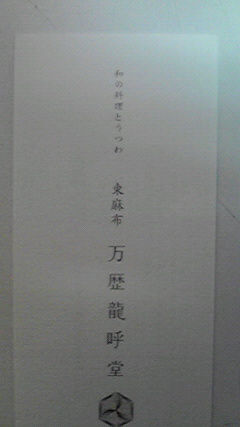 和の料理とうつわ
東麻布
万歴龍呼堂